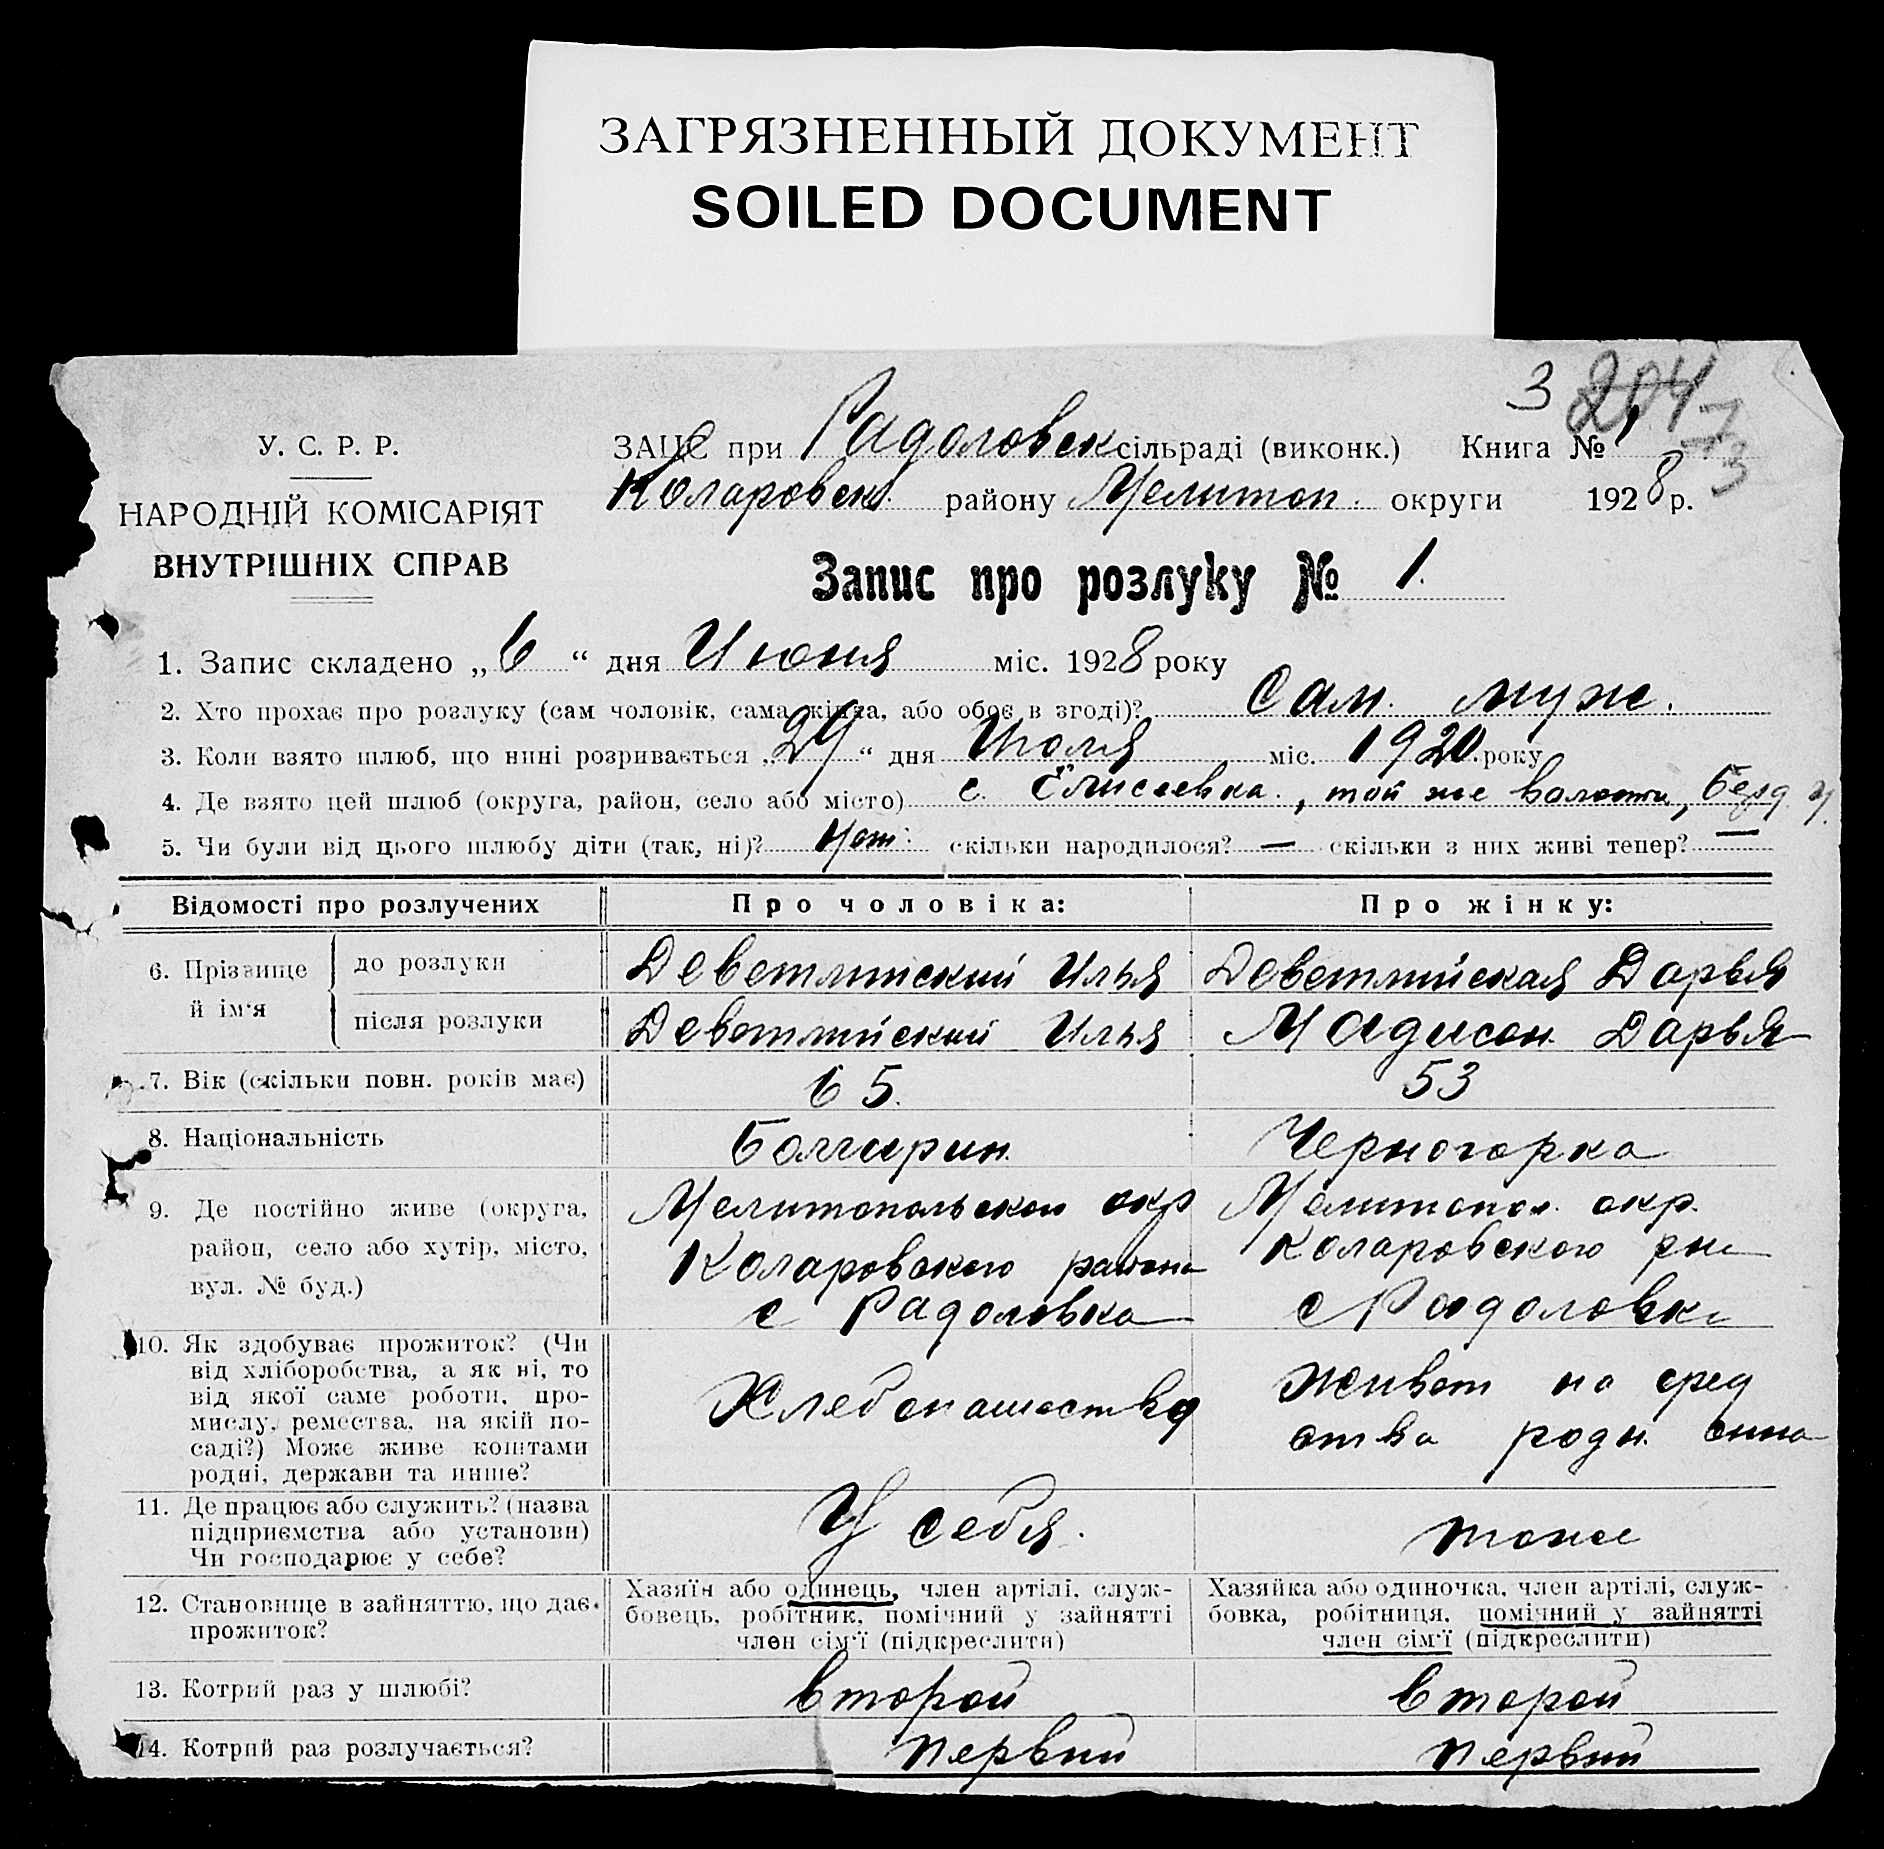 ЗАГРЯЗНЕННЫЙ ДОКУМЕНТ
SOILED DOCUMENT
3 204
73
У. С. Р. Р.
НАРОДНІЙ КОМІСАРІЯТ
ВНУТРІШНІХ СПРАВ
ЗАЦС при Радоловск сільраді (виконк.) Книга № 1
Коларовск. району Мелитоп. округи 1928 р.
Запис про розлуку № 1.
1. Запис складено „6“ дня Июня міс. 1928 року
2. Хто прохає про розлуку (сам чоловік, сама жінка, або обоє в згоді)? Сам. муж.
3. Коли взято шлюб, що нині розривається „24“ дня Июля міс. 1920 року
4. Де взято цей шлюб (округа, район, село або місто) с. Елисеевка, той же волости, Берд. у.
5. Чи були від цього шлюбу діти (так, ні)? Нет. скільки народилося? — скільки з них живі тепер? —
Відомості про розлучених
Про чоловіка:
Про жінку:
6. Прізвище й ім'я
до розлуки
Деветлийский Илья
Деветлийская Дарья
після розлуки
Деветлийский Илья
Мадисон Дарья
7. Вік (скільки повн. років має)
65.
53
8. Національність
Болгарин.
Черногорка
9. Де постійно живе (округа,
район, село або хутір, місто,
вул. № буд.)
Мелитопольской окр
Коларовского района
с Радоловка
Мелитопол. окр.
Коларовского рна
с Радоловка
10. Як здобуває прожиток? (Чи
від хліборобства, а як ні, то
від якої саме роботи, про-
мислу, ремества, на якій по-
саді?) Може живе коштами
родні, держави та инше?
Хлебопашества
Живет на сред
ства родн. сина
11. Де працює або служить? (назва
підприємства або установи)
Чи господарює у себе?
У себя.
тоже
12. Становище в зайняттю, що дає
прожиток?
Хазяїн або одинець, член артілі, служ-
бовець, робітник, помічний у зайнятті
член сім'ї (підкреслити)
Хазяйка або одиночка, член артілі, служ-
бовка, робітниця, помічний у зайнятті
член сім'ї (підкреслити)
13. Котрий раз у шлюбі?
второй
второй
14. Котрий раз розлучається?
первий
первий